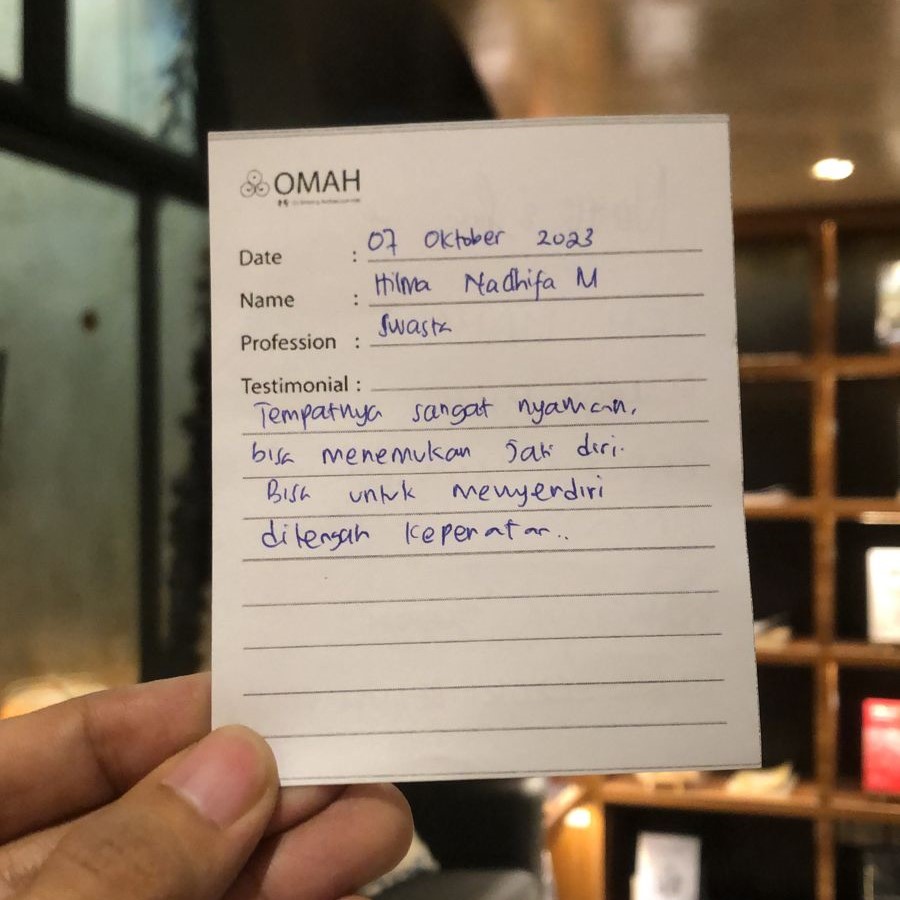 OMAH
Date : 07 Oktober 2023
Name : Hilma Nadhifa M
Profession : Swasta
Testimonial :
Tempatnya sangat nyaman,
bisa menemukan jati diri.
Bisa untuk menyendiri
ditengah kepenatan..